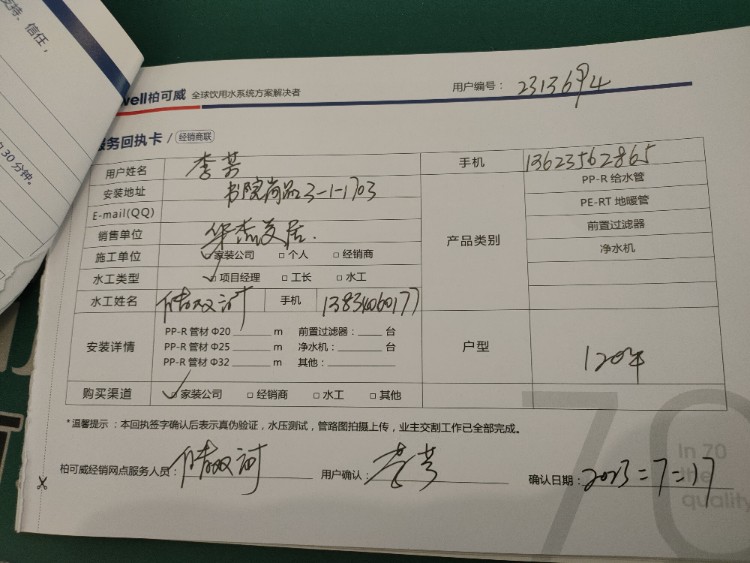 支持、信任,
30分钟。
well柏可威 全球饮用水系统方案解决者 用户编号:
务回执卡 / 经销商联
用户姓名 李芳 手机 13623562865
安装地址 书院尚品3-1-1703
E-mail(QQ)
销售单位
施工单位 ✓家装公司 □个人 □经销商
水工类型 ✓□项目经理 □工长 □水工
水工姓名 手机 13834060177
产品类别
PP-R 给水管
PE-RT 地暖管
前置过滤器
净水机
安装详情
PP-R 管材 Φ20 ______ m 前置过滤器:____ 台
PP-R 管材 Φ25 ______ m 净水机:______ 台
PP-R 管材 Φ32 ______ m 其他:______
户型 120平
购买渠道 ✓家装公司 □经销商 □水工 □其他
*温馨提示:本回执签字确认后表示真伪验证,水压测试,管路图拍摄上传,业主交割工作已全部完成。
柏可威经销网点服务人员: 用户确认:李芳 确认日期:2023=7=17
70
In 70
the
quality